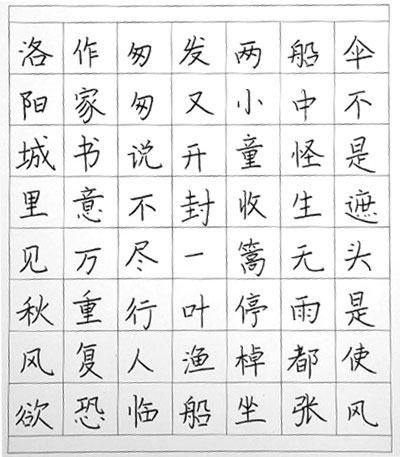 洛阳城里见秋风欲
作家书意万重复恐
匆匆说不尽行人临
发又开封一叶渔船
两小童收篙停棹坐
船中怪生无雨都张
伞不是遮头是使风